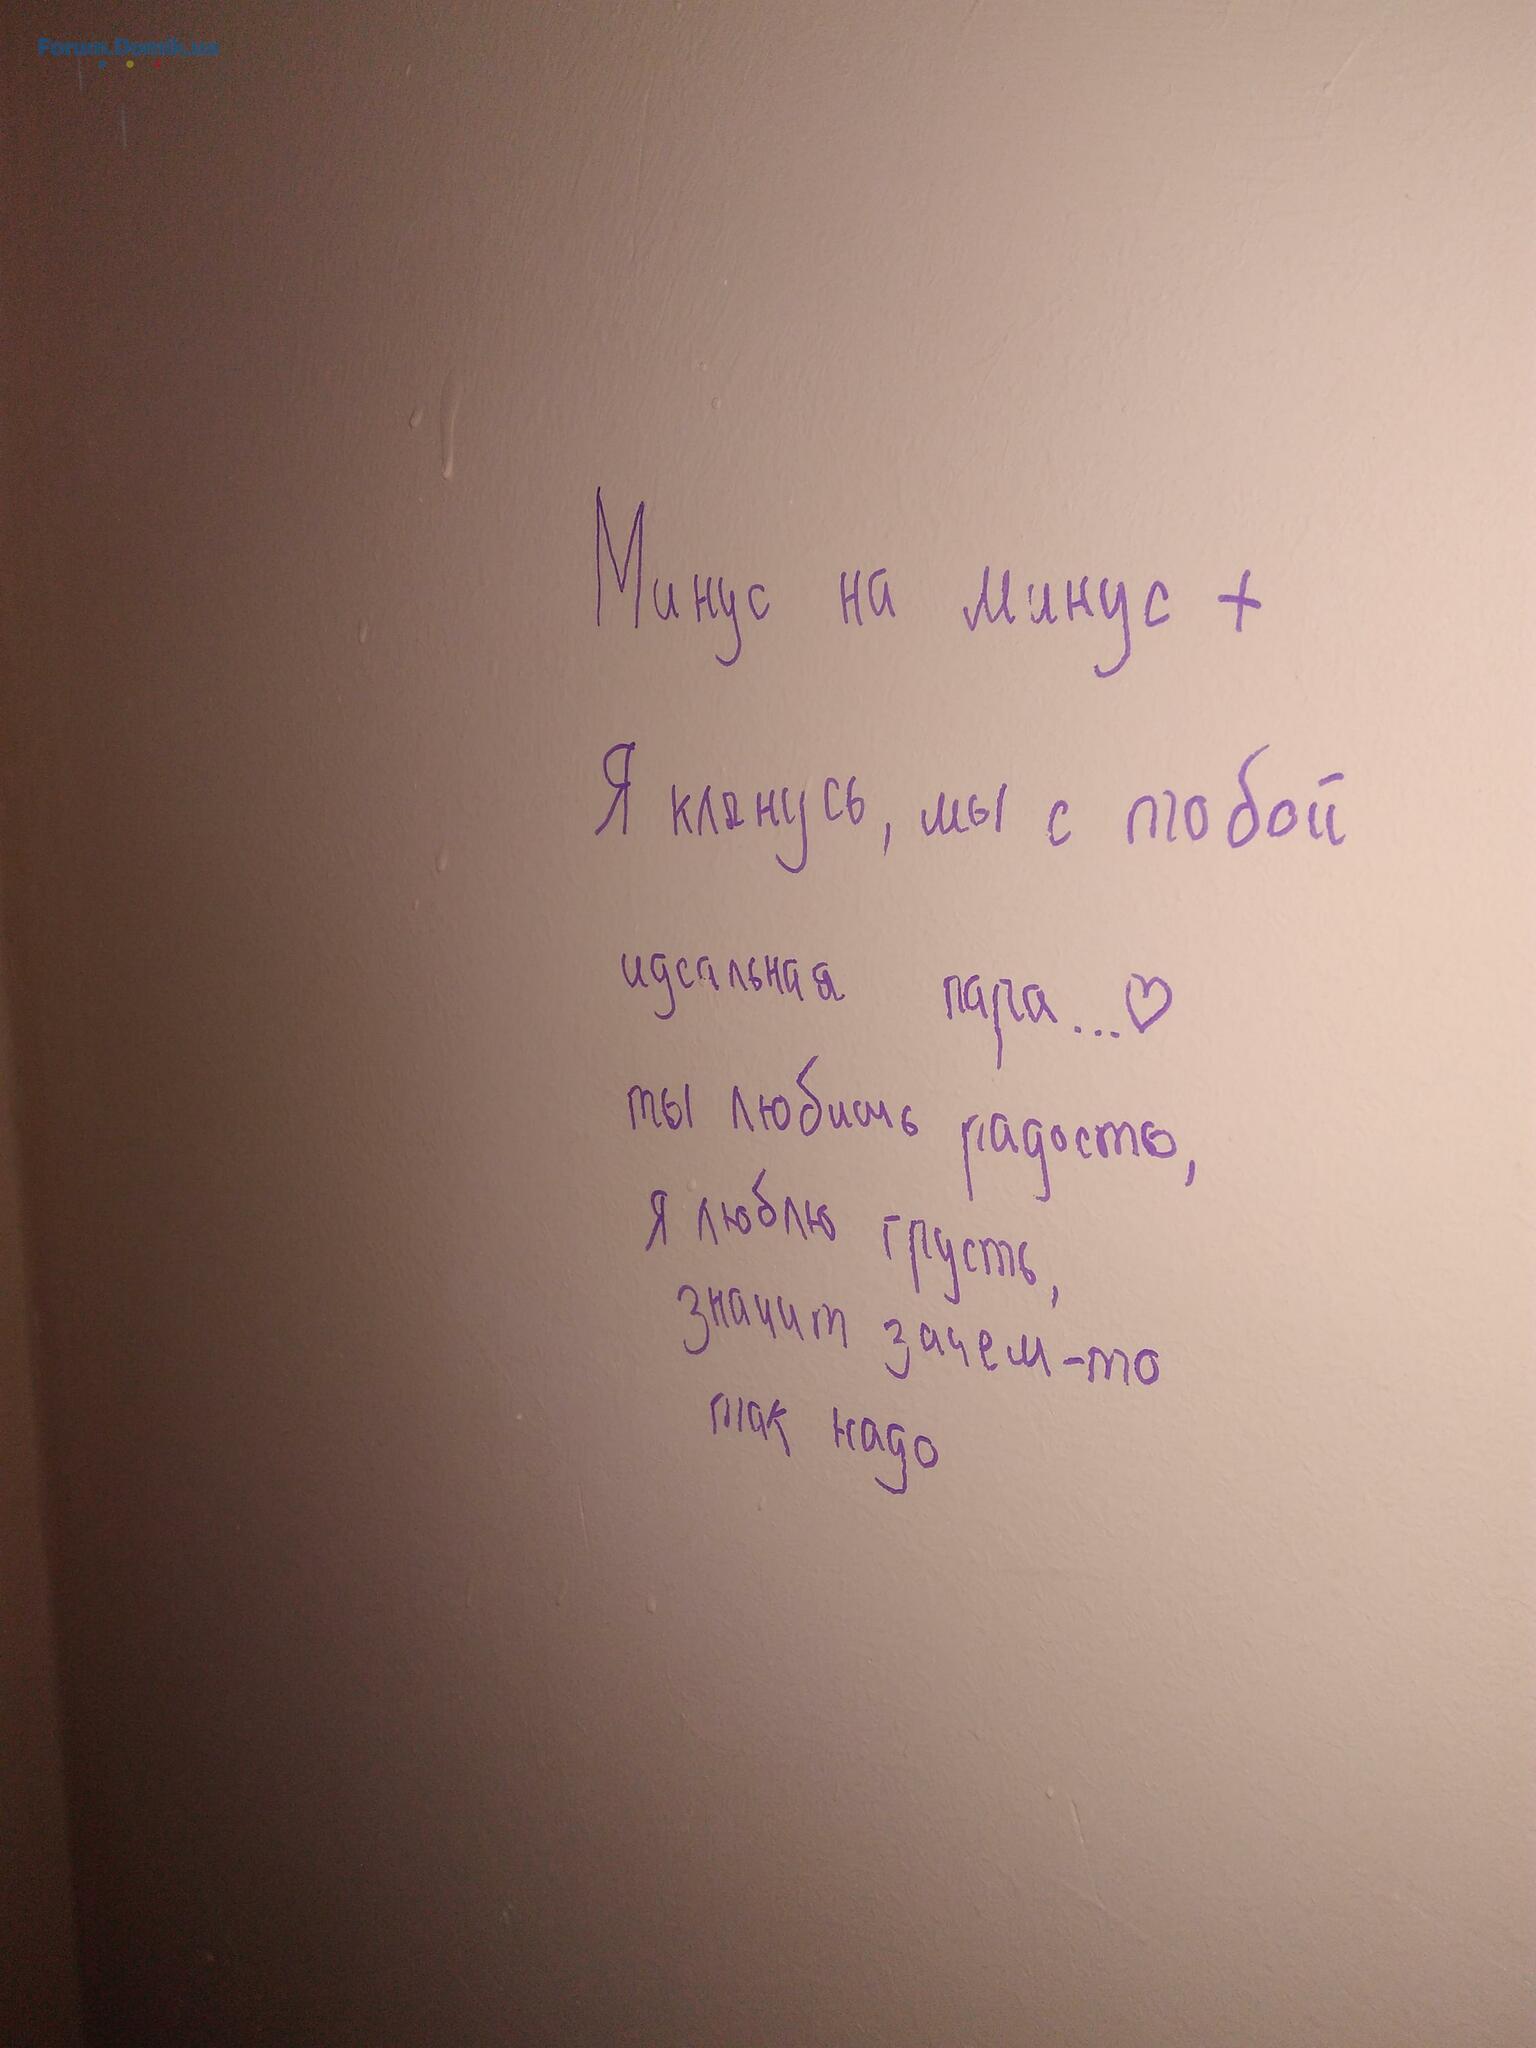 Forum.Domik.ua
Минус на минус +
Я клянусь, мы с тобой
идеальная пара...♡
ты любишь радость,
я люблю грусть,
значит зачем-то
так надо